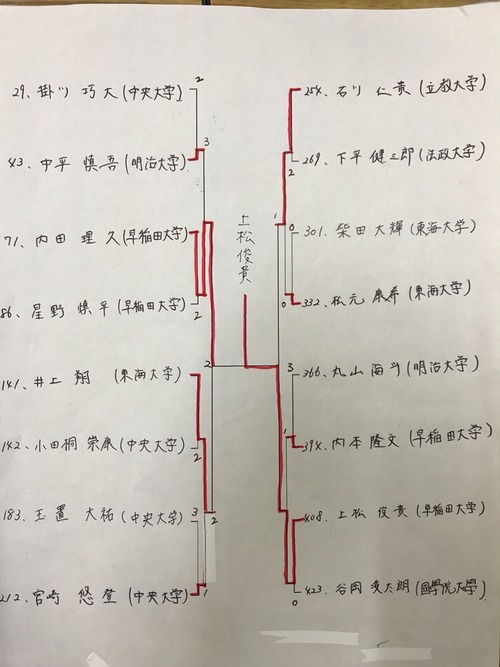 29. 掛川 巧大 (中央大学)
43. 中平 慎吾 (明治大学)
71. 内田 理久 (早稲田大学)
86. 星野 慎平 (早稲田大学)
141. 井上 翔 (東海大学)
142. 小田桐 崇廉 (中央大学)
183. 玉置 大祐 (中央大学)
212. 宮崎 悠登 (中央大学)
2
3
2
2
2
3
2
1
上松俊貴
254. 石川 仁貴 (立教大学)
269. 下平 健三郎 (法政大学)
301. 柴田 大輝 (東海大学)
332. 松元 康希 (東海大学)
366. 丸山 海斗 (明治大学)
394. 内本 隆文 (早稲田大学)
408. 上松 俊貴 (早稲田大学)
423. 谷岡 大朗 (國學院大學)
2
1
0
0
3
1
0